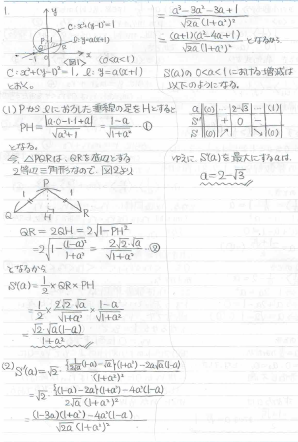 1.
y
C: x²+(y-1)²=1
P 1
l: y=a(x+1)
Q
R
-1 0
x
<図1> (0<a<1)
C: x²+(y-1)²=1, l: y=a(x+1)
とおく。
(1) Pから l におろした垂線の足をHとすると
PH = |a・0-1・1+a| / √(a²+1) = (1-a) / √(1+a²) ①
となる。
今, △PQRは、QRを底辺とする
2等辺三角形なので、図2より
P
1 1
Q H R
QR = 2QH = 2√(1-PH²)
= 2√(1-(1-a)²/(1+a²)) = 2√2・√a / √(1+a²) ②
となるから
S(a) = 1/2 × QR × PH
= 1/2 × 2√2√a / √(1+a²) × (1-a) / √(1+a²)
= √2・√a(1-a) / (1+a²)
(2) S'(a) = √2・[{1/(2√a)(1-a)-√a}(1+a²)-2a√a(1-a)] / (1+a²)²
= √2・[{(1-a)-2a}(1+a²)-4a²(1-a)] / 2√a(1+a²)²
= [(1-3a)(1+a²)-4a²(1-a)] / √(2a)(1+a²)²
= (a³-3a²-3a+1) / √(2a)(1+a²)²
= (a+1)(a²-4a+1) / √(2a)(1+a²)² となるから
S(a)の 0<a<1 における増減は
以下のようになる。
a (0) … 2-√3 … (1)
S' + 0 -
S (0) ↗ ↘ (0)
ゆえに S(a)を最大にするaは、
a=2-√3